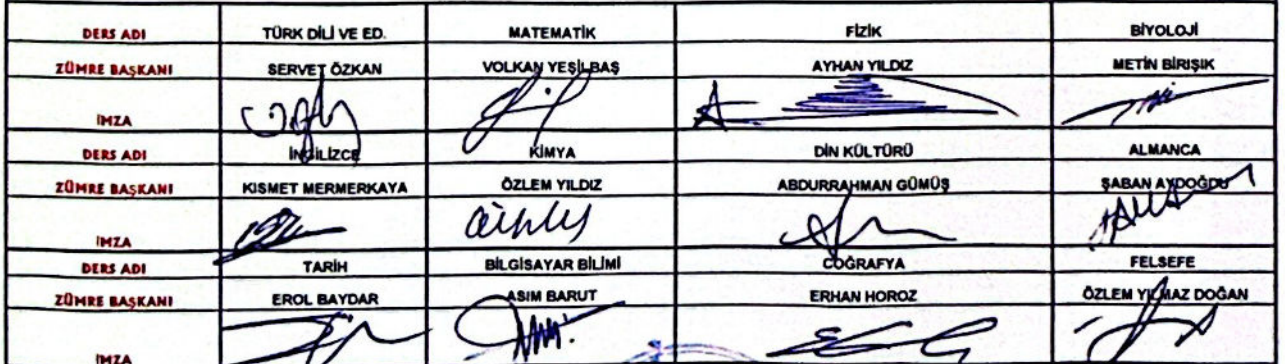 DERS ADI TÜRK DİLİ VE ED. MATEMATİK FİZİK BİYOLOJİ
ZÜMRE BAŞKANI SERVET ÖZKAN VOLKAN YEŞİLBAŞ AYHAN YILDIZ METİN BİRIŞIK
İMZA
DERS ADI İNGİLİZCE KİMYA DİN KÜLTÜRÜ ALMANCA
ZÜMRE BAŞKANI KISMET MERMERKAYA ÖZLEM YILDIZ ABDURRAHMAN GÜMÜŞ ŞABAN AYDOĞDU
İMZA
DERS ADI TARİH BİLGİSAYAR BİLİMİ COĞRAFYA FELSEFE
ZÜMRE BAŞKANI EROL BAYDAR ASIM BARUT ERHAN HOROZ ÖZLEM YILMAZ DOĞAN
İMZA